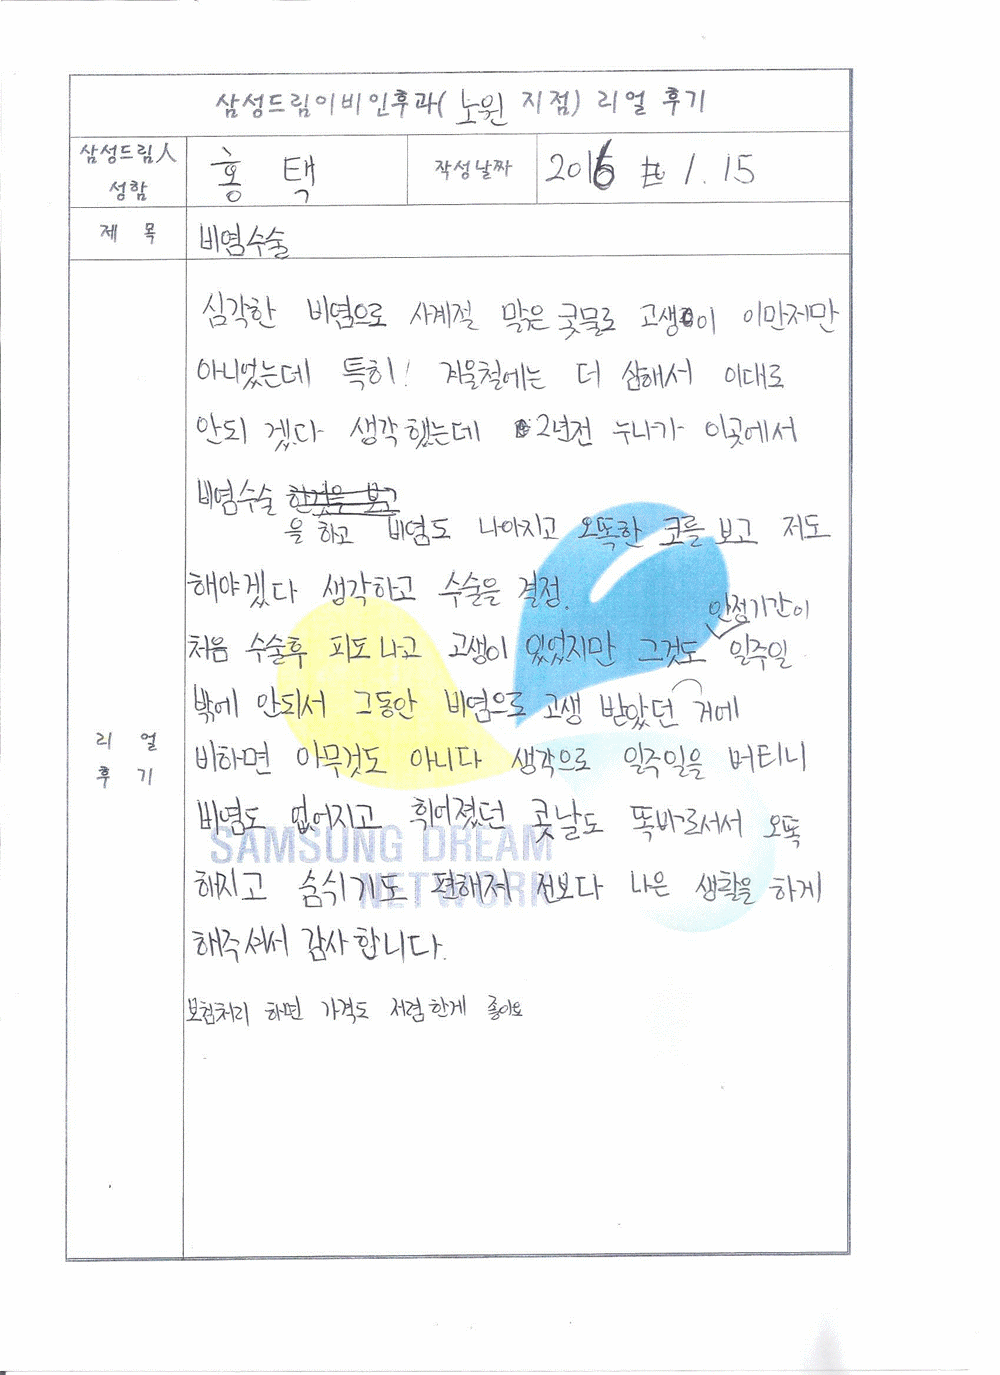 삼성드림이비인후과( 노원 지점) 리얼 후기
삼성드림人 성함 홍 택 작성날짜 2016 1.15
제 목 비염수술
심각한 비염으로 사계절 맑은 콧물로 고생이 이만저만
아니었는데 특히! 겨울철에는 더 심해서 이대로
안되 겠다 생각 했는데 2년전 누나가 이곳에서
비염수술 한것을 보고
을 하고 비염도 나아지고 오똑한 코를 보고 저도
해야겠다 생각하고 수술을 결정.
안정기간이
처음 수술후 피도 나고 고생이 있었지만 그것도 일주일
밖에 안되서 그동안 비염으로 고생 받았던 거에
비하면 아무것도 아니다 생각으로 일주일을 버티니
비염도 없어지고 휘어졌던 콧날도 똑바로서서 오똑
해지고 숨쉬기도 편해져 전보다 나은 생활을 하게
해주셔서 감사합니다.
보험처리 하면 가격도 저렴한게 좋아요
리 얼
후 기
SAMSUNG DREAM
NETWORK